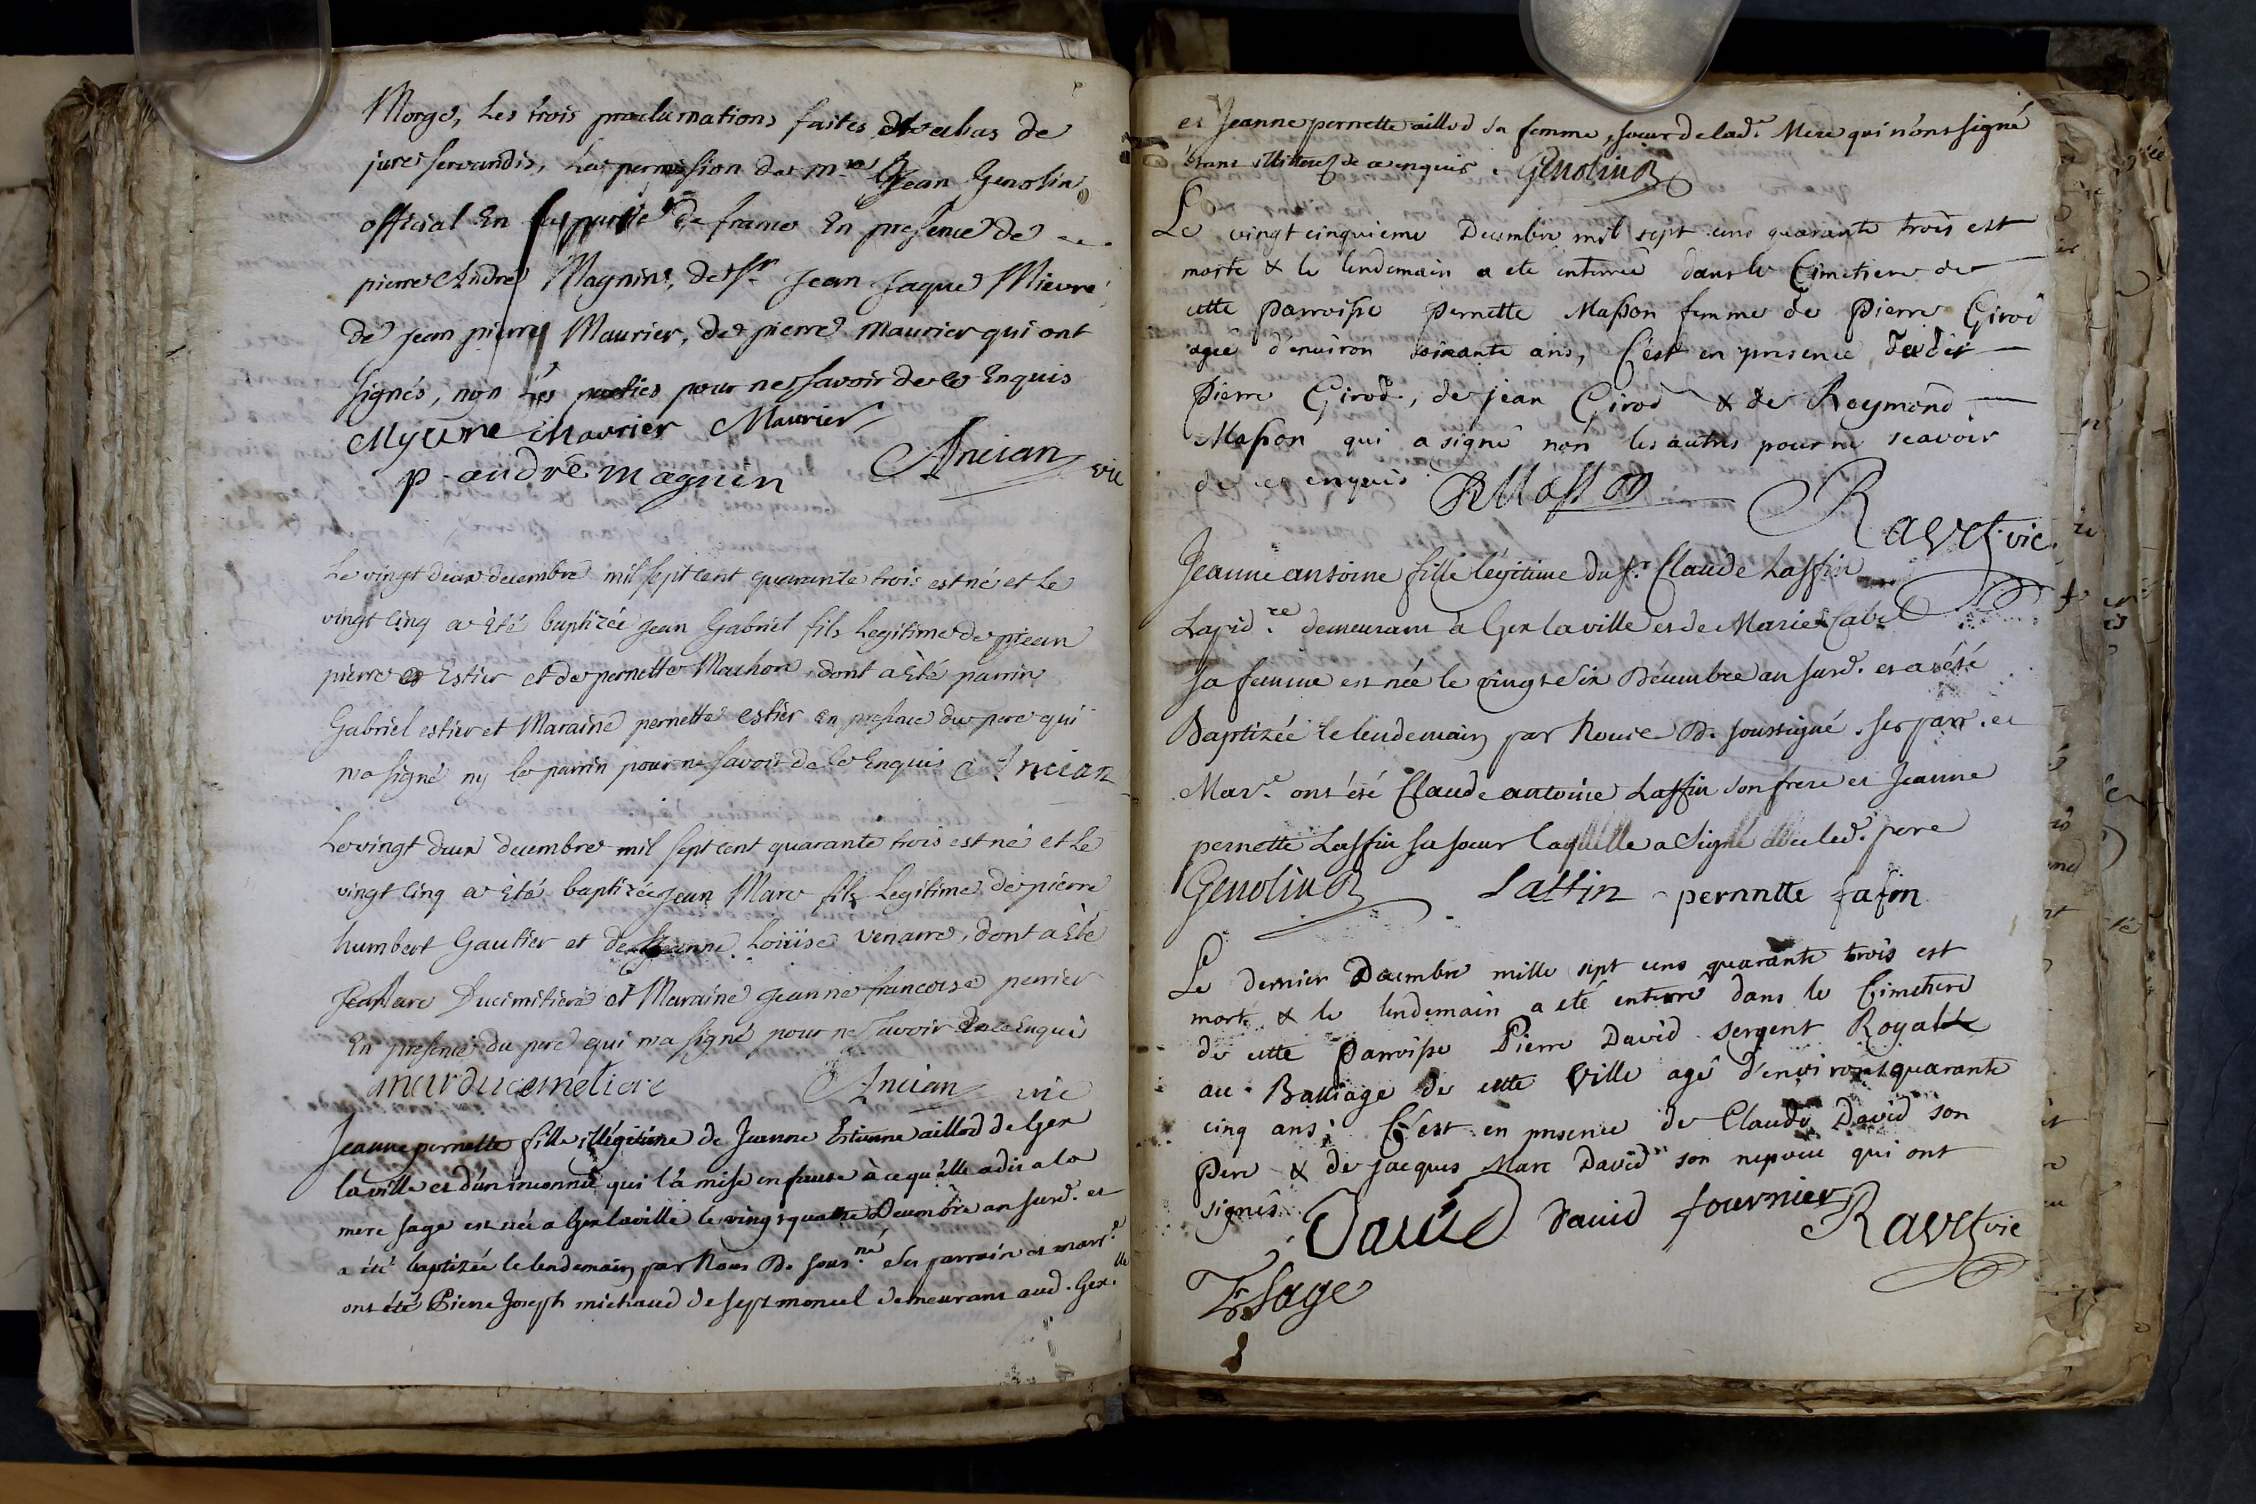 Morge, Les trois proclamations faites de
jure servandis, La permission de Mre Jean Genolin
official En partie de france En presence de
pierre André Magnin, de Sr Jean Jaque Mievre
de Jean pierre Maurier, de pierre Maurier qui ont
signés, non Les parties pour ne savoir de ce Enquis
Myevre Maurier Maurier
p. andré magnin Ancian vic
Le vingt deux decembre mil sept cent quarante trois est né et Le
vingt Cinq a Eté baptizée Jean Gabriel fils Legitime de Jean
pierre Estier et de pernette Machon, dont a Eté parrin
Gabriel estier et Maraine pernette estier En presence du pere qui
na signé ny le parrin pour ne savoir de ce Enquis Ancian
Le vingt deux decembre mil sept cent quarante trois est né et Le
vingt Cinq a Eté baptizée Jean Marc fils Legitime de pierre
humbert Gautier et de Jeanne Loüise venarre, dont a Eté
Ducimitiere et Maraine Jeanne francoise perrier
En presence du pere qui na signé pour ne savoir de ce Enquis
ducemetiere Ancian vic
Jeanne pernette fille illégitime de Jeanne Estienne aillod de Gex
la ville et d'un inconnu qui l'a mise en fausse à ce qu'elle a dit a la
mere sage est née a Gex la ville le vingt quatre Decembre an surd. et
a été baptizée le lendemain par Nous B. sous.né Ses parrain et marr.e
ont été Pierre Joseph michaud de sept moncel demeurant aud. Gex. la ville
et Jeanne pernette aillod sa femme, soeur de lad.e Mere qui n'ont signé
etans illitterez de ce enquis. Genolin B
Le vingt cinquieme Decembre mil sept cens quarante trois est
morte & le lendemain a eté enterrée dans le Cimetiere de
cette parroisse pernette Masson femme de Pierre Girod
agée d'environ soixante ans, C'est en presence dudit
Pierre Girod, de jean Girod & de Reymond
Masson qui a signé non les autres pour ne scavoir
de ce enquis RMasson Ravet vic.
Jeanne antoine fille légitime du Sr. Claude Laffin
Lapid.re demeurant à Gex la ville et de Marie Cabl
sa femme est née le vingt et six Décembre an surd. et a été
Baptizée le lendemain par Nous B. soussigné. ses parr. et
Mar.e ont été Claude antoine Laffin son frere et Jeanne
pernette Laffin sa soeur laquelle a signé avec led. pere
Genolin B Laffin pernntte fafin
Le dernier Decembre mille sept cens quarante trois est
mort & le lendemain a eté enterré dans le Cimetiere
de cette parroisse Pierre David sergent Royal
au Balliage de cette Ville agé d'environt quarante
cinq ans; C'est en presence de Claude David son
Pere & de jacques Marc David son nepveu qui ont
signés. David david fournier Ravet vic
Lesage